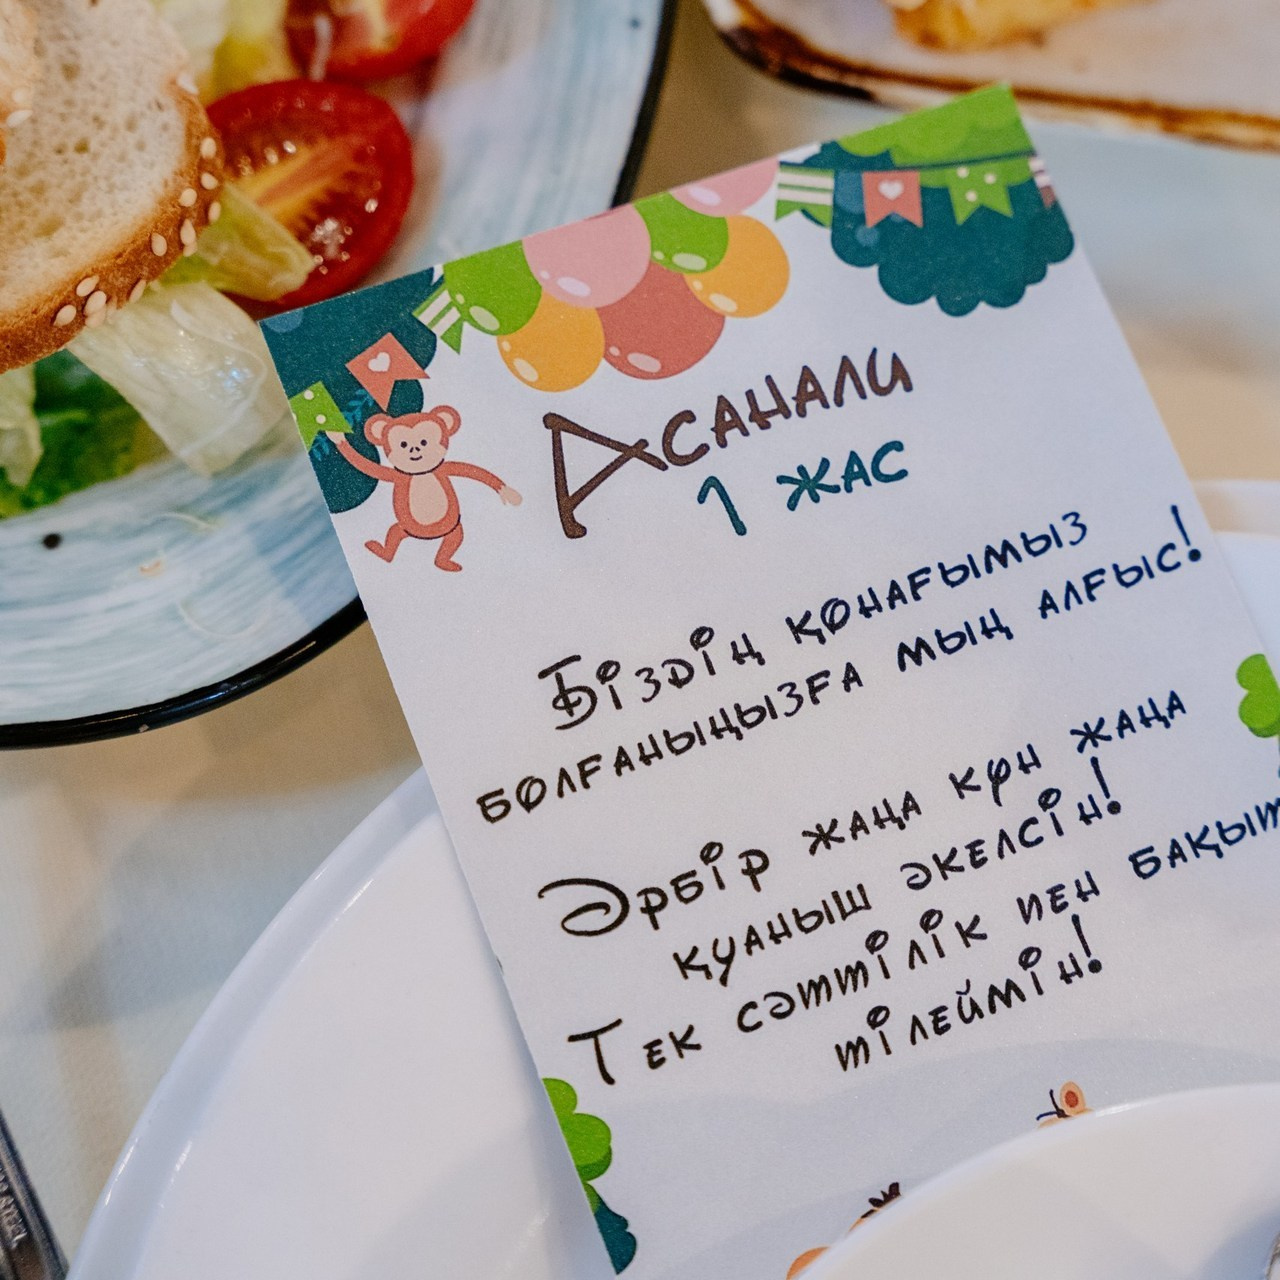 Асанали
1 жас
Біздің қонағымыз
болғаныңызға мың алғыс!
Әрбір жаңа күн жаңа
қуаныш әкелсін!
Тек сәттілік пен бақыт
тілеймін!